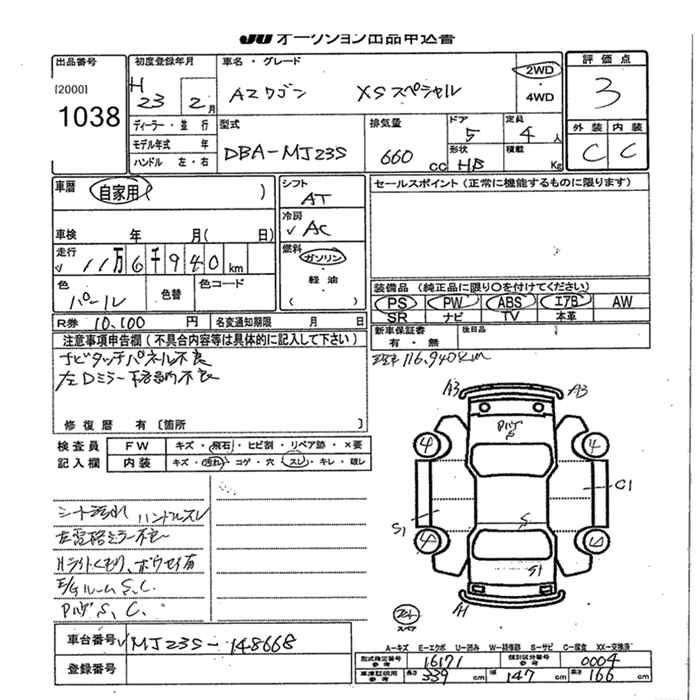 JU オークション出品申込書
出品番号
[2000]
1038
初度登録年月
H 23 2月
ディーラー・並行
モデル年式 年
ハンドル 左・右
車名・グレード
AZワゴン XSスペシャル
2WD
・
4WD
評価点
3
外装 内装
C C
型式
DBA-MJ23S
排気量
660 cc
ドア
5
形状
HB
定員
4 人
積載
Kg
車暦 自家用( )
車検 年 月( 日)
走行
11万6千940 km
色
パール
色替
色コード
R券 10,100 円
名変通知期限 月 日
シフト
AT
冷房
AC
燃料
ガソリン
・
軽油
( )
セールスポイント (正常に機能するものに限ります)
装備品 (純正品に限り○を付けてください)
PS PW ABS エアB AW
SR ナビ TV 本革
新車保証書
有・無
後日品
注意事項申告欄 (不具合内容等は具体的に記入して下さい)
ナビタッチパネル不良
左Dミラー格納不良
修復暦 有 [箇所 ]
116,940km
検査員
記入欄
FW キズ・飛石・ヒビ割・リペア跡・×要
内装 キズ・汚れ・コゲ・穴・スレ・キレ・破レ
シート汚れ ハンドルスレ
左電格ミラー不良
Hライトくもり、ボウセイ有
E/gルームS、C、
PバゲS、C、
A3 A3
Pバゲ
S
4 4
S1 G1
S
4 4
S1
A1
スペア
車台番号 MJ23S-148668
登録番号
A-キズ E-エクボ U-凹み W-補修跡 S-サビ C-腐食 XX-交換済
型式指定番号
参考
16171
類別区分番号
参考
0004
車庫証明用
参考
長さ 339 cm
幅 147 cm
高さ 166 cm